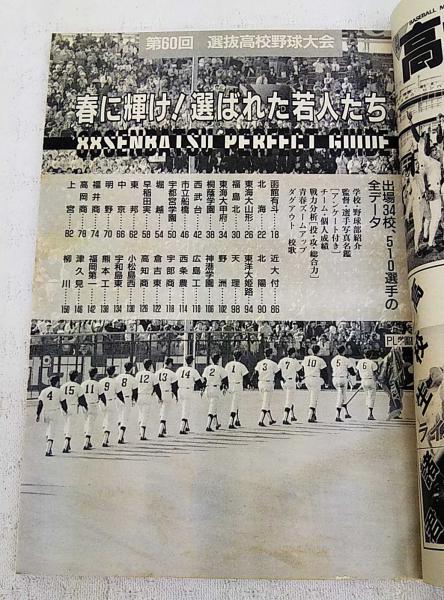 第60回 選抜高校野球大会
春に輝け!選ばれた若人たち
'88 SENBATSU PERFECT GUIDE
出場34校、510選手の
全データ
学校・野球部紹介
監督・選手写真名鑑
「アンケート付き」
チーム・個人成績
戦力分析「投・攻・総合力」
青春ズームアップ
ダグアウト 校歌
函館有斗 18
北海 22
東海大山形 26
福島北 30
東海大甲府 34
桐蔭学園 38
西武台 42
市立船橋 46
宇都宮学園 50
堀越 54
早稲田実 58
東邦 62
中京 66
明野 70
福井商 74
高岡商 78
上宮 82
近大付 86
北陽 90
東洋大姫路 94
天理 98
野洲 102
神港学園 106
広島工 110
西条農 114
宇部商 118
倉吉東 122
高知商 126
小松島西 130
宇和島東 134
熊本工 138
福岡第一 142
津久見 146
柳川 150
4 15 9 8 12 14 11 13 2 1 3 7 10 5 6
PL学園
BASEBALL M
高